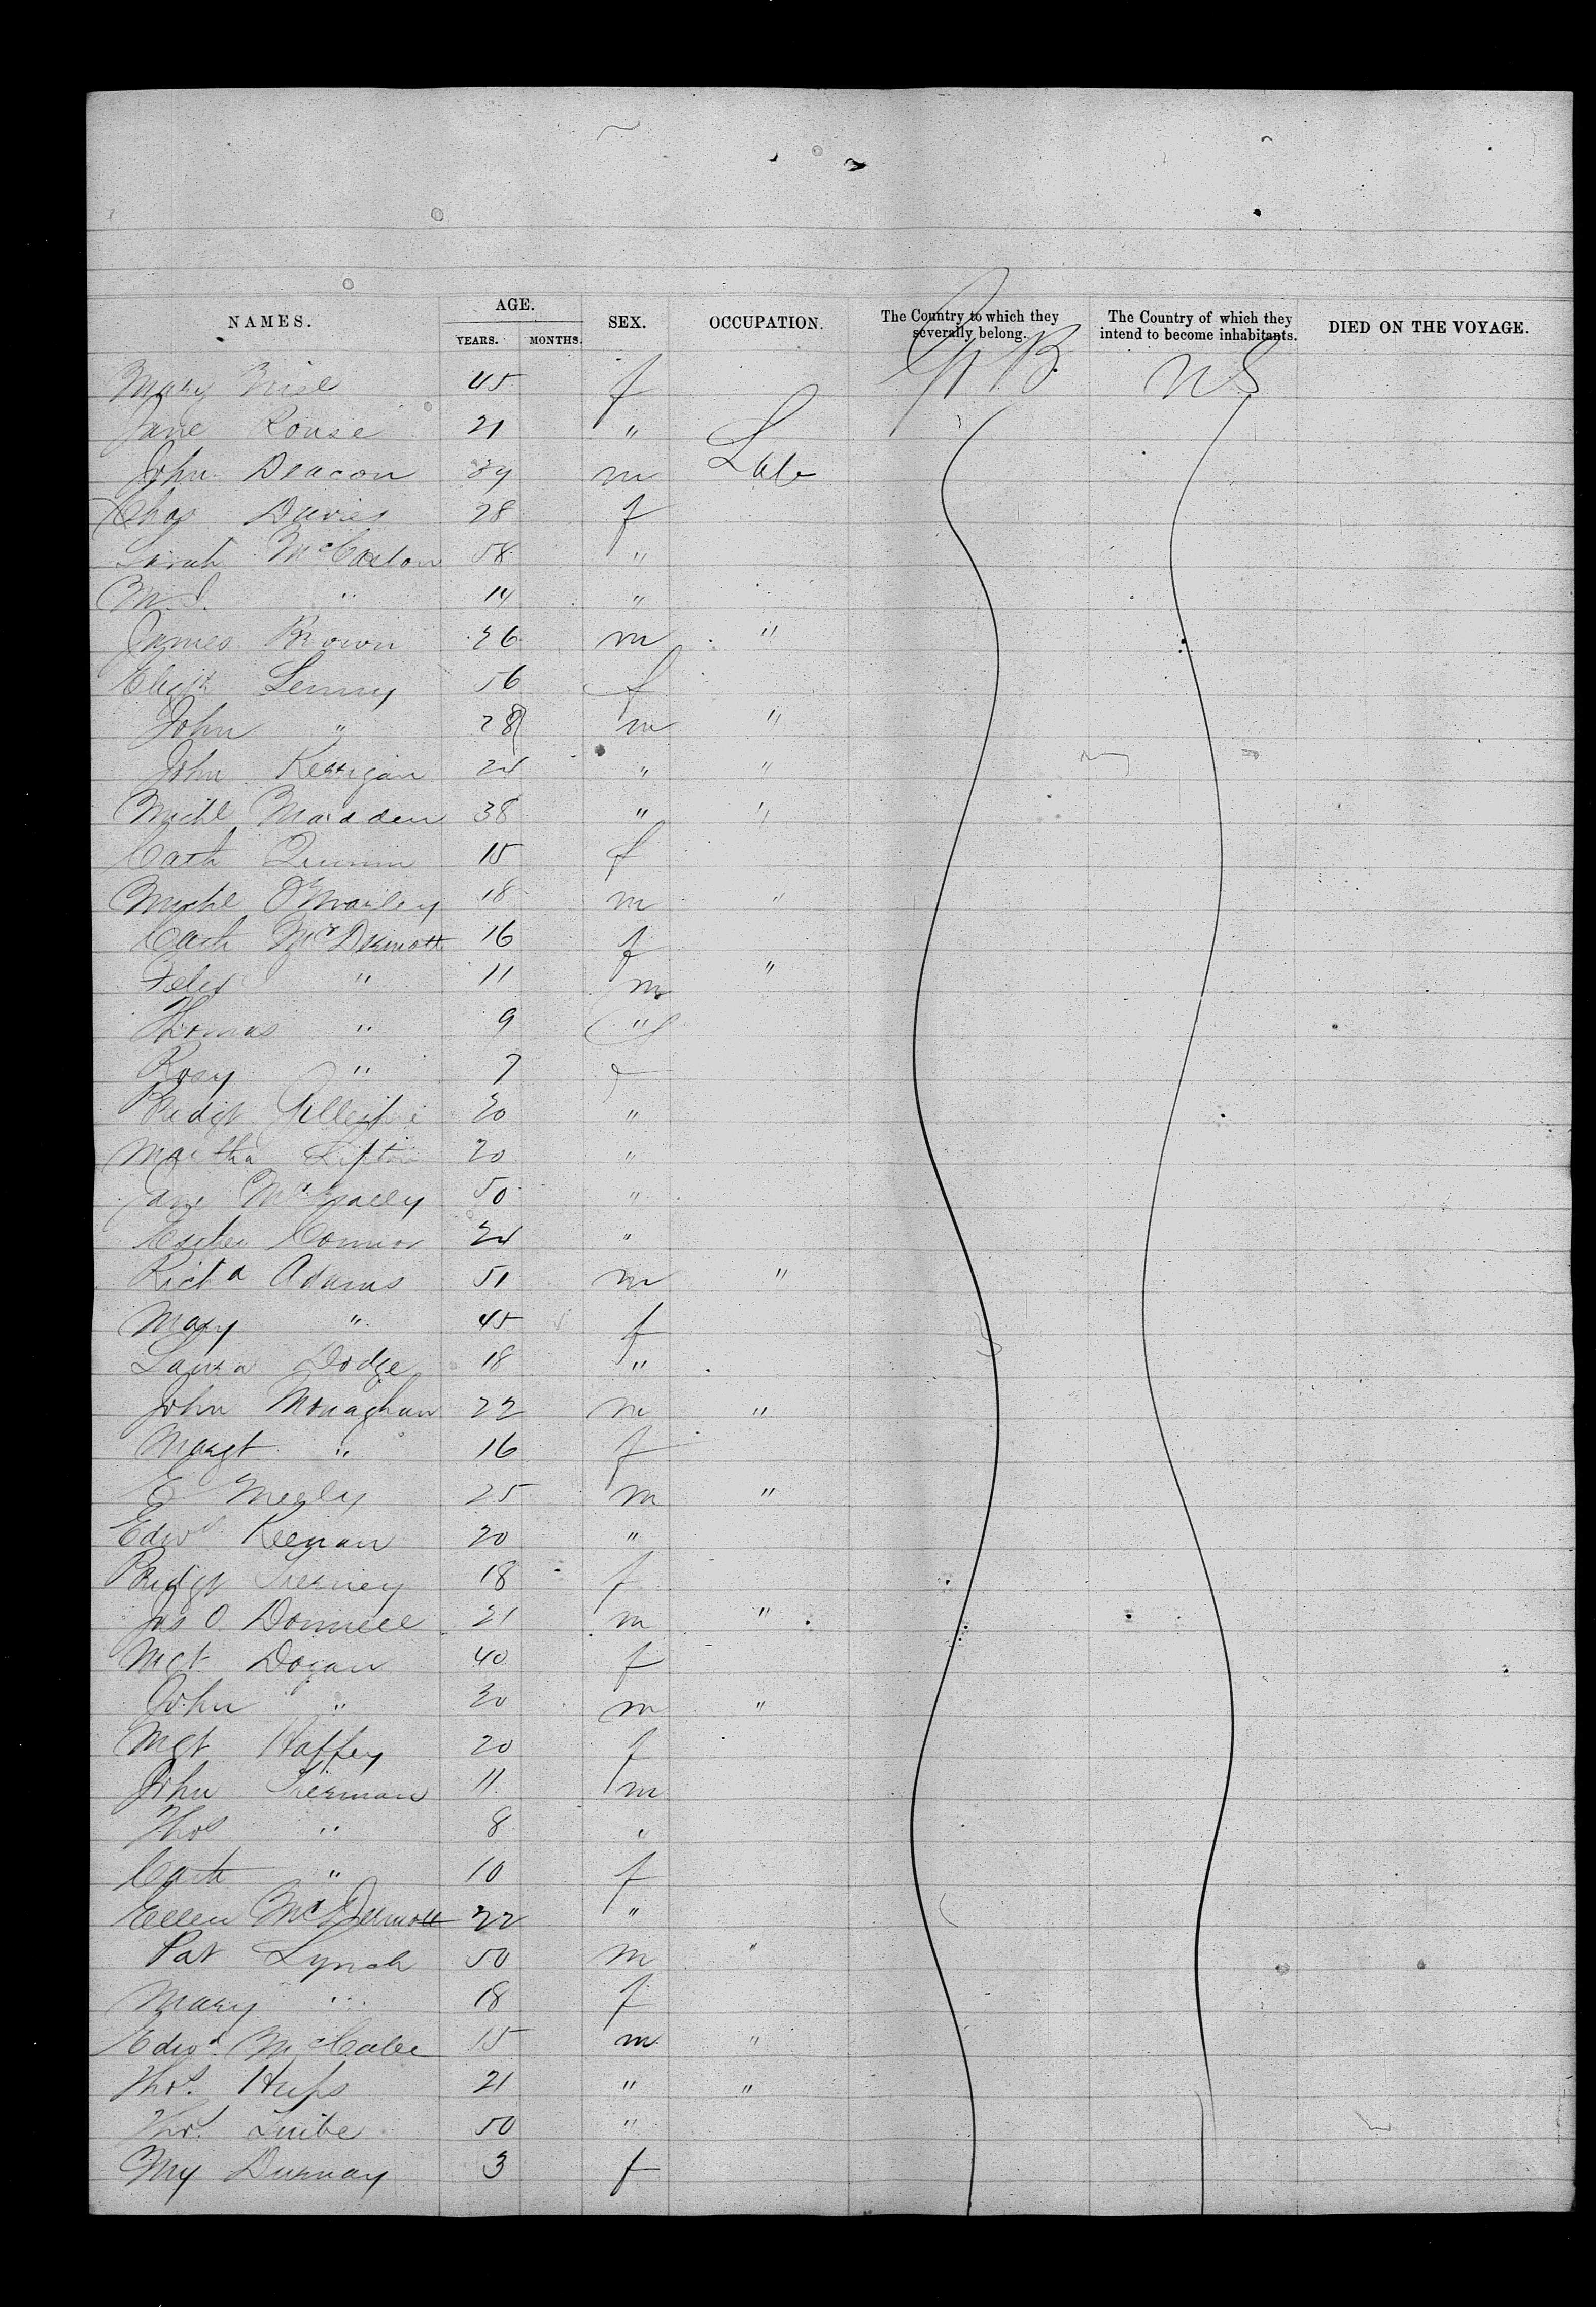 NAMES. AGE. SEX. OCCUPATION. The Country to which they severally belong. The Country of which they intend to become inhabitants. DIED ON THE VOYAGE.
YEARS. MONTHS.
Mary 45 f G B. U S
Jane Rouse 21 "
John Deacon 39 m Lab
Chas Davies 28 f
Sarah McCaslon 58 "
M. J. " 14 "
James Brown 26 m "
Elizth Lenny 56 f
John " 28 m "
John Kerrigan 24 " "
Michl Madden 38 " "
Cath Quinn 15 f
Michl O'Mailey 18 m "
Cath McDermott 16 f
Felix " 11 m "
Thomas " 9 "
Rosy " 7 f
Bridgt Gillespie 20 "
Martha Lipton 20 "
Jane McNally 50 "
Esther Connor 24 "
Richd Adams 51 m "
Mary " 45 f
Laura Dodge 18 "
John Monaghan 22 m "
Margt " 16 f
E 25 m "
Edwd Keenan 20 "
Bridgt Tierney 18 f
Jas O. Donnell 21 m "
Mgt Dogan 40 f
John " 20 m "
Mgt Haffey 20 f
John Tierman 11 m
Thos " 8 "
Cath " 10 f
Ellen McDermott 22 "
Pat Lynch 50 m "
Mary " 18 f
Edwd McCabe 15 m "
Thos. 21 " "
Thos. 50 "
My Durnay 3 f